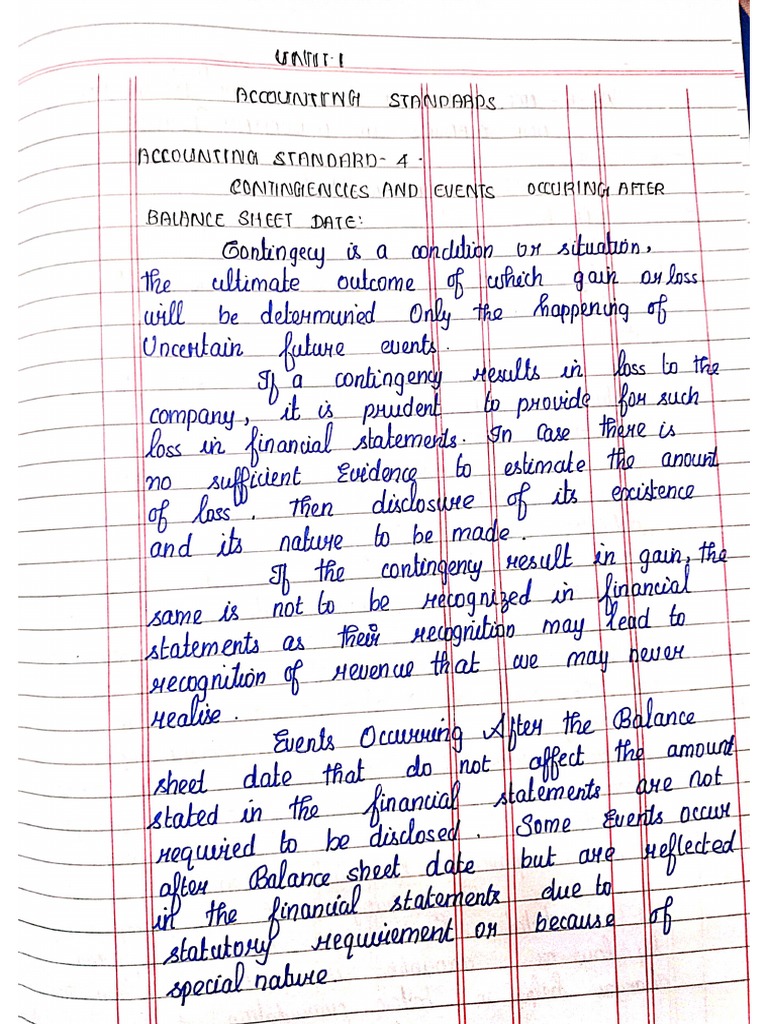 UNIT-1
ACCOUNTING STANDARDS
ACCOUNTING STANDARD- 4.
CONTINGENCIES AND EVENTS OCCURING AFTER
BALANCE SHEET DATE:
Contingecy is a condition or situation,
the ultimate outcome of which gain or loss
will be determined Only the happening of
Uncertain future events.
If a contingency results in loss to the
company, it is prudent to provide for such
loss in financial statements. In case there is
no sufficient Evidence to estimate the amount
of loss. Then disclosure of its existence
and its nature to be made.
If the contingency result in gain, the
same is not to be recognized in financial
statements as their recognition may lead to
recognition of revenue that we may never
realise.
Events Occurring After the Balance
sheet date that do not affect the amount
stated in the financial statements are not
required to be disclosed. Some Events occur
after Balance sheet date but are reflected
in the financial statements due to
statutory requiriement or because of
special nature.